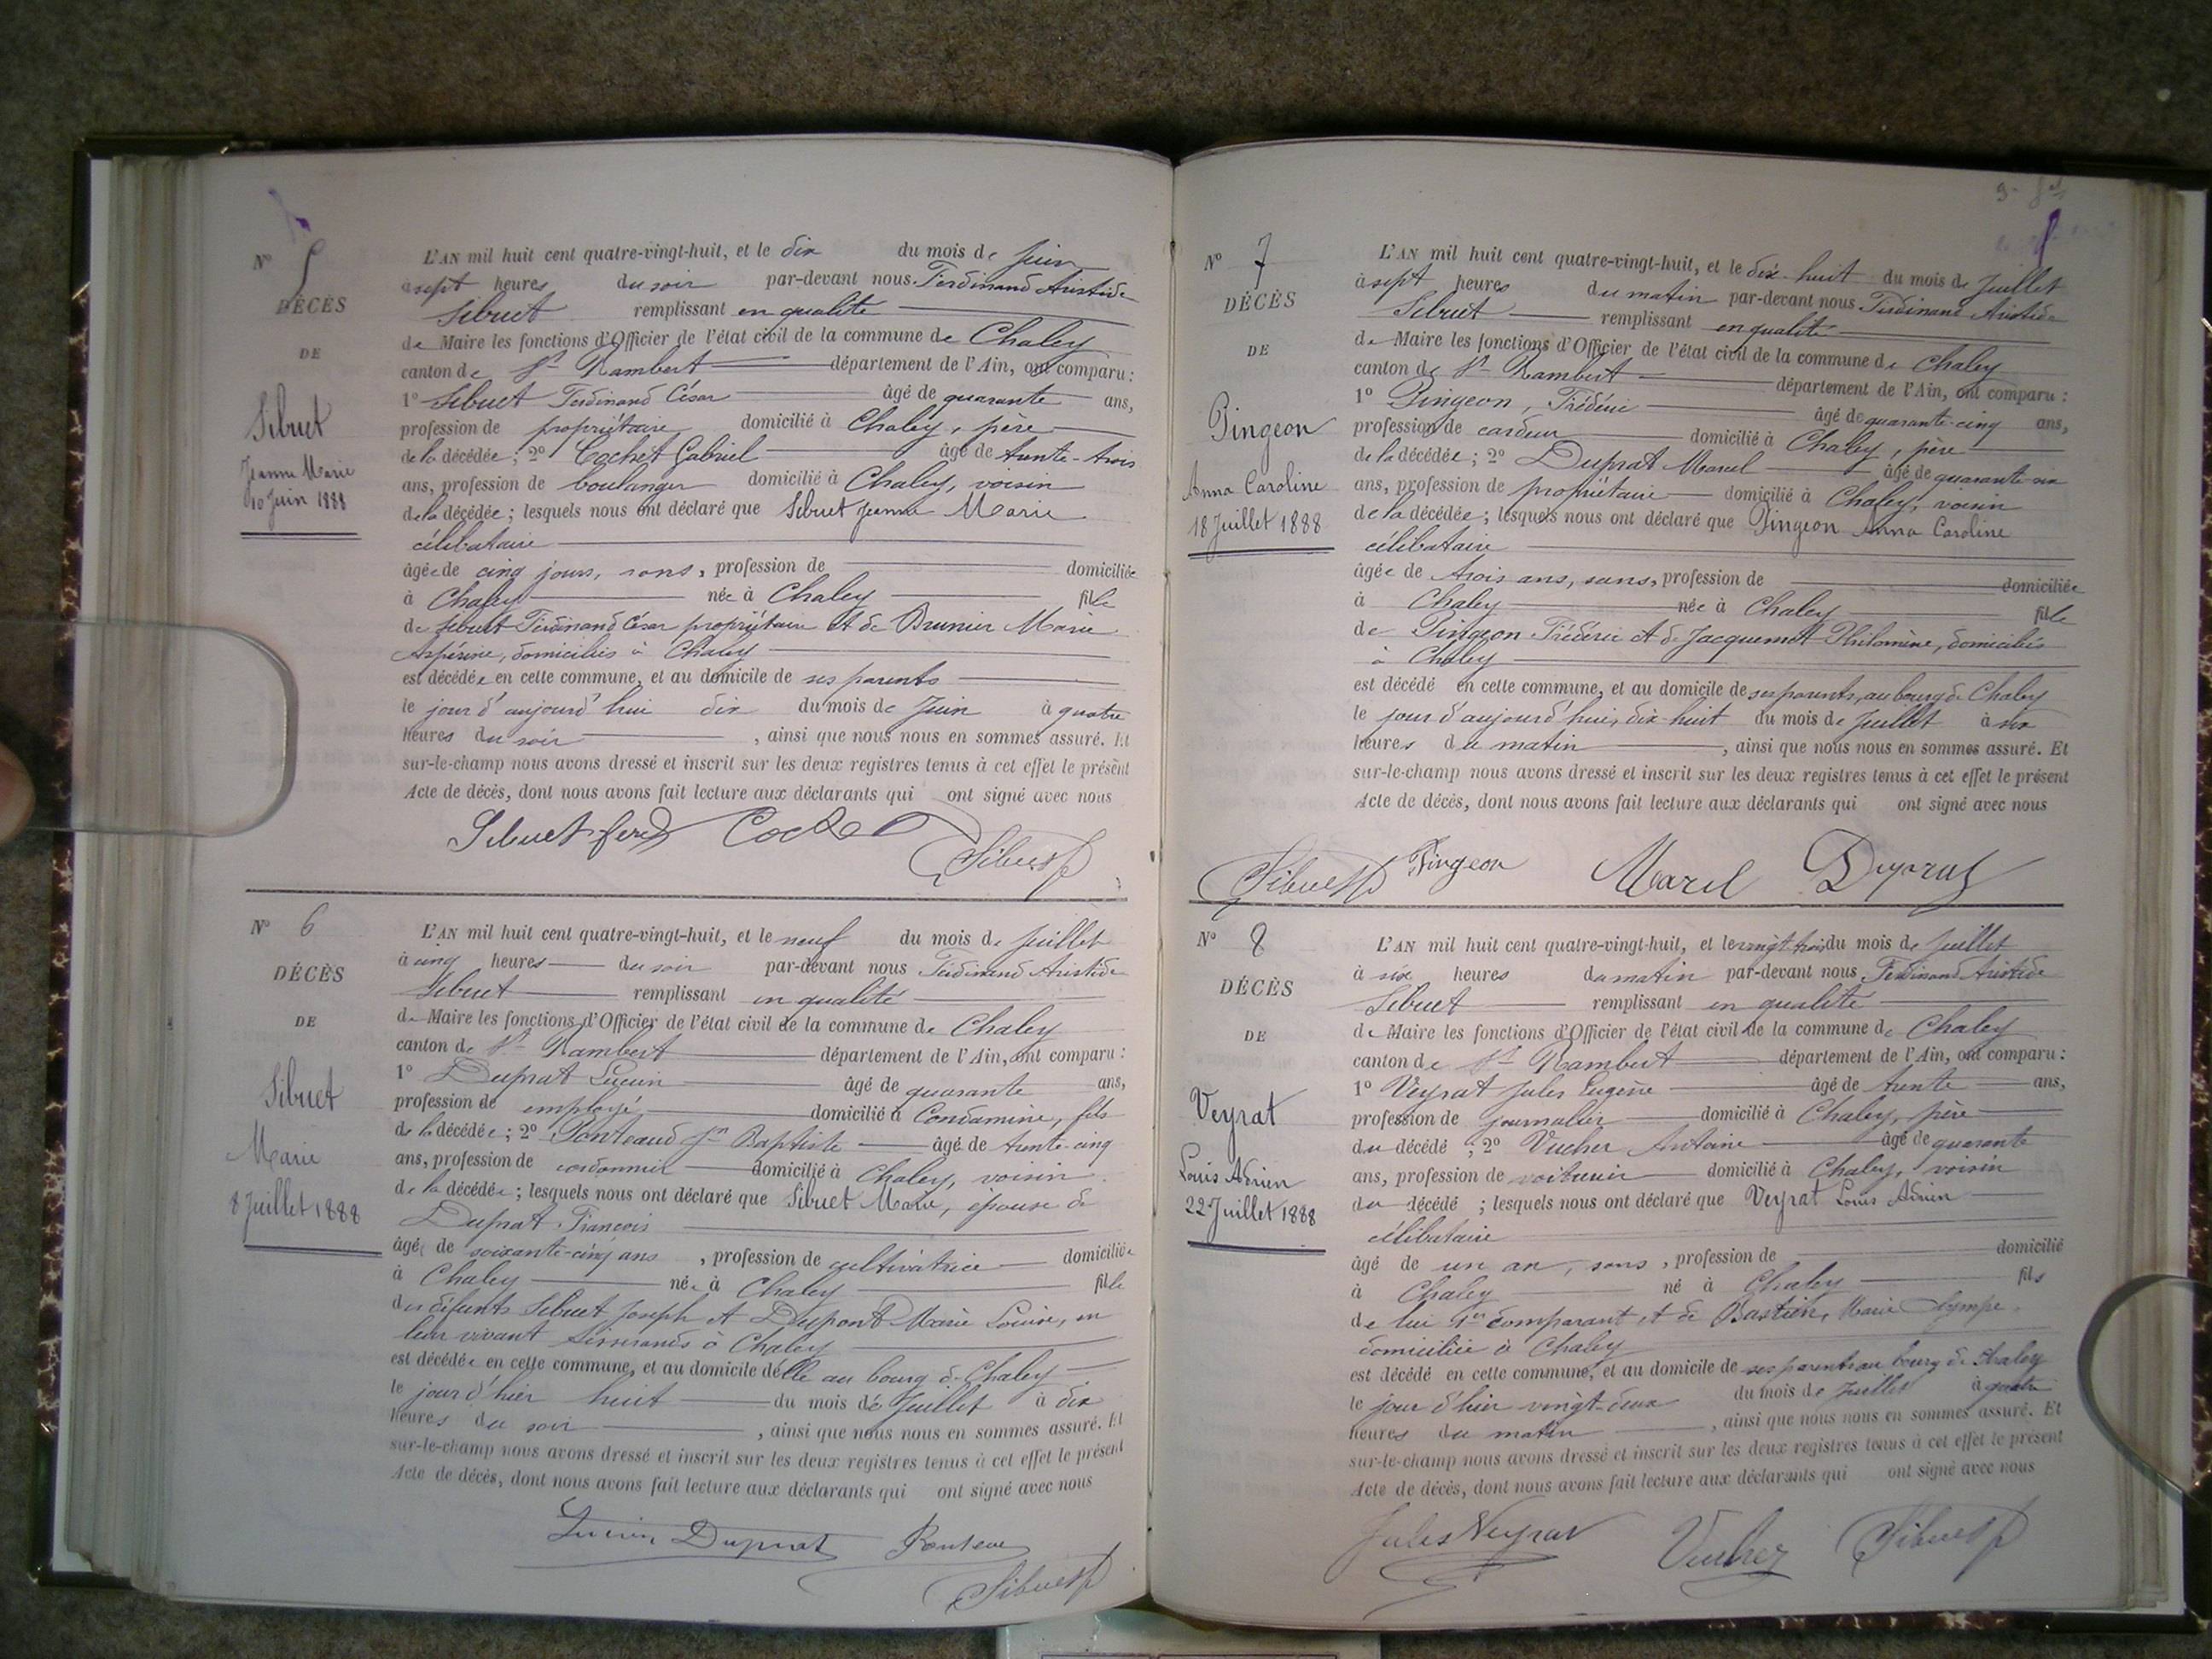 N° 5
DÉCÈS
DE
Sibuet
Jeanne Marie
10 Juin 1888
L'AN mil huit cent quatre-vingt-huit, et le dix du mois de Juin
à sept heures du soir par-devant nous Ferdinand Aristide
Sibuet remplissant en qualité
de Maire les fonctions d'Officier de l'état civil de la commune de Chaley
canton de St Rambert département de l'Ain, ont comparu :
1° Sibuet Ferdinand César âgé de quarante ans,
profession de propriétaire domicilié à Chaley, père
de la décédée ; 2° Cochet Gabriel âgé de trente-trois
ans, profession de boulanger domicilié à Chaley, voisin
de la décédée ; lesquels nous ont déclaré que Sibuet Jeanne Marie
célibataire
âgée de cinq jours, sans, profession de domiciliée
à Chaley née à Chaley fille
de Sibuet Ferdinand César propriétaire et de Brunier Marie
domiciliés à Chaley
est décédée en cette commune, et au domicile de ses parents
le jour d'aujourd'hui dix du mois de Juin à quatre
heures du soir , ainsi que nous nous en sommes assuré. Et
sur-le-champ nous avons dressé et inscrit sur les deux registres tenus à cet effet le présent
Acte de décès, dont nous avons fait lecture aux déclarants qui ont signé avec nous
Sibuet ferd Cochet
Sibuet
N° 6
DÉCÈS
DE
Sibuet
Marie
8 Juillet 1888
L'AN mil huit cent quatre-vingt-huit, et le neuf du mois de Juillet
à cinq heures du soir par-devant nous Ferdinand Aristide
Sibuet remplissant en qualité
de Maire les fonctions d'Officier de l'état civil de la commune de Chaley
canton de St Rambert département de l'Ain, ont comparu :
1° Duprat Lucien âgé de quarante ans,
profession de employé domicilié à Condamine, fils
de la décédée ; 2° Ponteaud Jn Baptiste âgé de trente-cinq
ans, profession de cordonnier domicilié à Chaley, voisin
de la décédée ; lesquels nous ont déclaré que Sibuet Marie, épouse de
Duprat François
âgée de soixante-cinq ans , profession de cultivatrice domiciliée
à Chaley née à Chaley fille
des défunts Sibuet Joseph et Dupont Marie Louise, en
leur vivant tisserands à Chaley
est décédée en cette commune, et au domicile d'elle au bourg de Chaley
le jour d'hier huit du mois de Juillet à dix
heures du soir , ainsi que nous nous en sommes assuré. Et
sur-le-champ nous avons dressé et inscrit sur les deux registres tenus à cet effet le présent
Acte de décès, dont nous avons fait lecture aux déclarants qui ont signé avec nous
Lucien Duprat
Sibuet
N° 7
DÉCÈS
DE
Pingeon
Anna Caroline
18 Juillet 1888
L'AN mil huit cent quatre-vingt-huit, et le dix-huit du mois de Juillet
à sept heures du matin par-devant nous Ferdinand Aristide
Sibuet remplissant en qualité
de Maire les fonctions d'Officier de l'état civil de la commune de Chaley
canton de St Rambert département de l'Ain, ont comparu :
1° Pingeon, Frédéric âgé de quarante-cinq ans,
profession de cardeur domicilié à Chaley, père
de la décédée ; 2° Duprat Marcel âgé de quarante-six
ans, profession de propriétaire domicilié à Chaley, voisin
de la décédée ; lesquels nous ont déclaré que Pingeon Anna Caroline
célibataire
âgée de trois ans, sans, profession de domiciliée
à Chaley née à Chaley fille
de Pingeon Frédéric et de Jacquemet Philomène, domiciliés
à Chaley
est décédé en cette commune, et au domicile de ses parents, au bourg de Chaley
le jour d'aujourd'hui, dix-huit du mois de Juillet à six
heures du matin , ainsi que nous nous en sommes assuré. Et
sur-le-champ nous avons dressé et inscrit sur les deux registres tenus à cet effet le présent
Acte de décès, dont nous avons fait lecture aux déclarants qui ont signé avec nous
Sibuet Pingeon Marcel Duprat
N° 8
DÉCÈS
DE
Veyrat
Louis Adrien
22 Juillet 1888
L'AN mil huit cent quatre-vingt-huit, et le vingt trois du mois de Juillet
à six heures du matin par-devant nous Ferdinand Aristide
Sibuet remplissant en qualité
de Maire les fonctions d'Officier de l'état civil de la commune de Chaley
canton de St Rambert département de l'Ain, ont comparu :
1° Veyrat Jules Eugène âgé de trente ans,
profession de journalier domicilié à Chaley, père
du décédé ; 2° Vucher Antoine âgé de quarante
ans, profession de voiturier domicilié à Chaley, voisin
du décédé ; lesquels nous ont déclaré que Veyrat Louis Adrien
célibataire
âgé de un an, sans , profession de domicilié
à Chaley né à Chaley fils
de lui 1er comparant et de Bastien, Marie Olympe
domiciliée à Chaley
est décédé en cette commune, et au domicile de ses parents au bourg de Chaley
le jour d'hier vingt-deux du mois de Juillet à quatre
heures du matin , ainsi que nous nous en sommes assuré. Et
sur-le-champ nous avons dressé et inscrit sur les deux registres tenus à cet effet le présent
Acte de décès, dont nous avons fait lecture aux déclarants qui ont signé avec nous
Jules Veyrat Vucher Sibuet